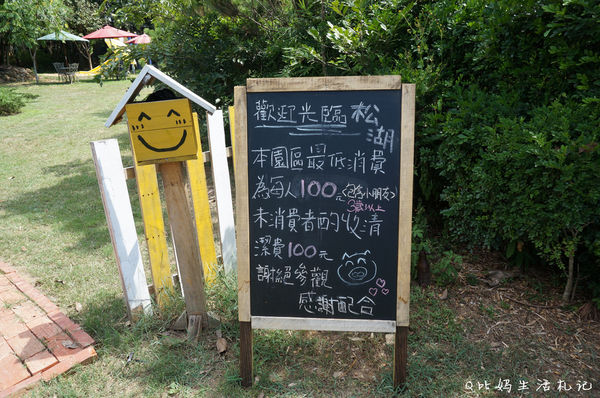 歡迎光臨松湖
本園區最低消費
為每人100元(包含小朋友)
3歲以上
未消費者酌收清
潔費100元
謝絕參觀
感謝配合
Q比媽生活札記